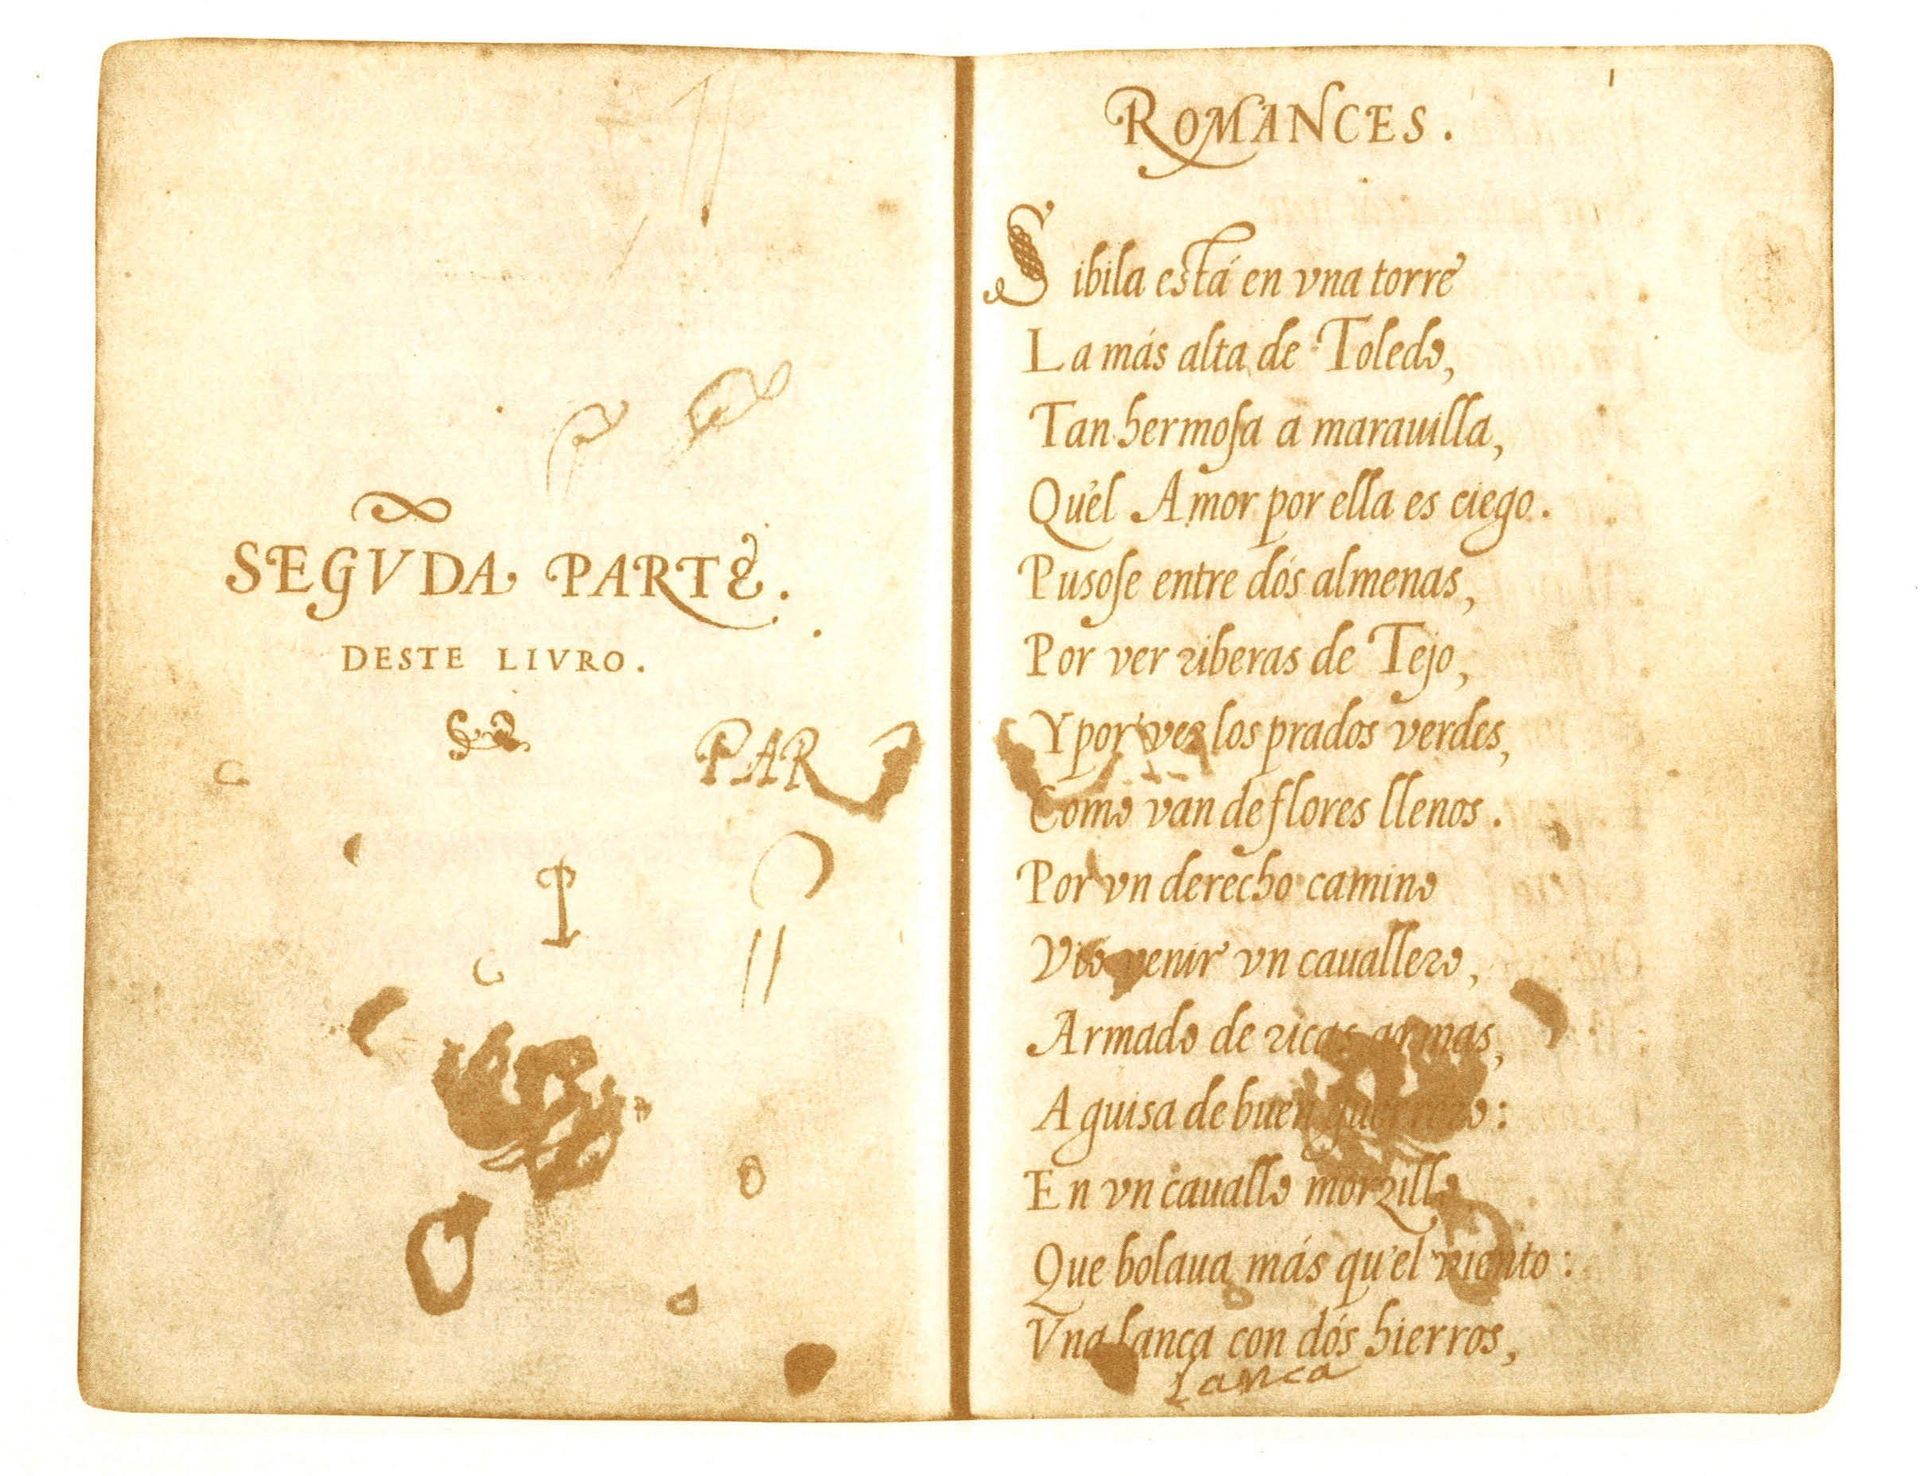 SEGVDA PARTE.
DESTE LIVRO.
PAR
ROMANCES.
Sibila está en vna torre
La más alta de Toledo,
Tan hermosa a marauilla,
Qu'el Amor por ella es ciego.
Pusose entre dós almenas,
Por ver riberas de Tejo,
Y por ver los prados verdes,
Como van de flores llenos.
Por vn derecho camino
Vio venir vn cauallero,
Armado de ricas armas,
A guisa de buen guerrero:
En vn cauallo morzillo
Que bolaua más qu'el viento:
Vna lanca con dós hierros,
Lanca